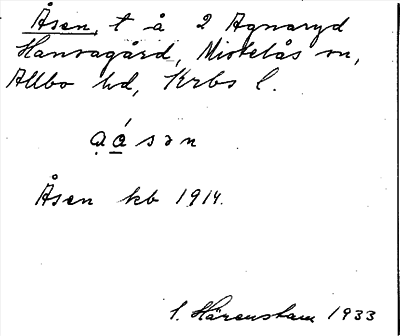 Åsen, t å 2 Agnaryd
Hansagård, Mistelås sn,
Allbo hd, Krbs l.
a̤ó̲sən
Åsen kb 1914.
S. Härenstam 1933